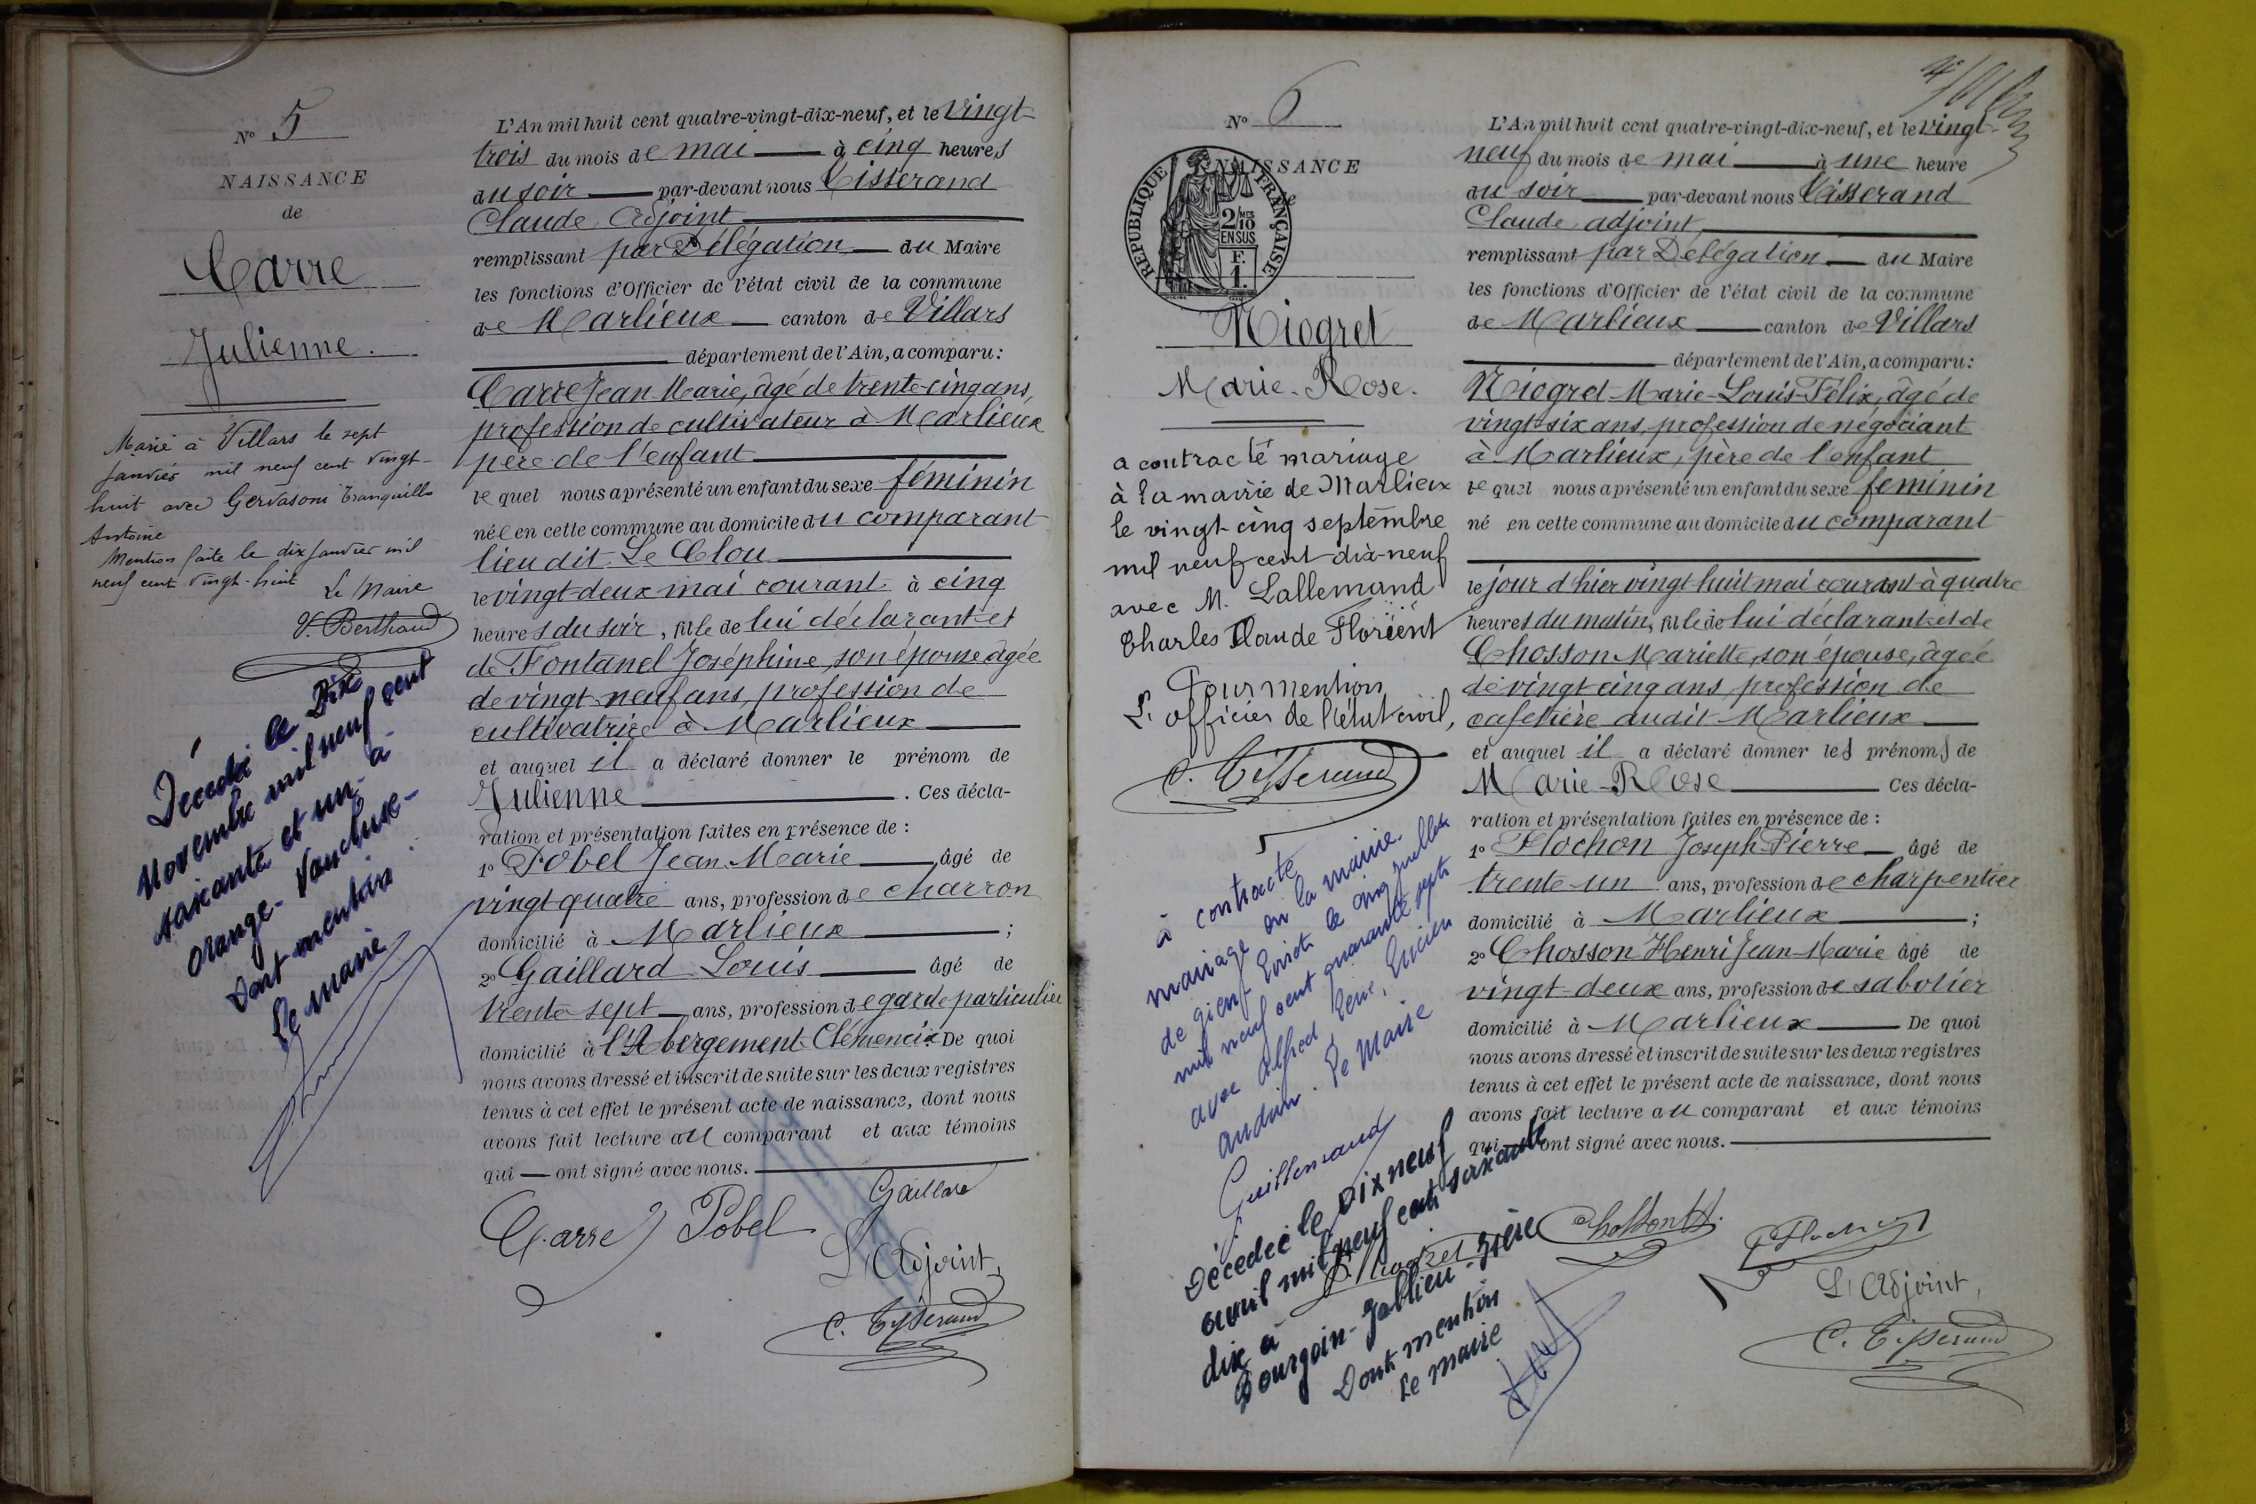 N° 5
NAISSANCE
de
Carre
Julienne.
Marié à Villars le sept
Janvier mil neuf cent vingt-
huit avec Gervasoni Tranquillo
Antoine
Mention faite le dix janvier mil
neuf cent vingt-huit
Le Maire
V. Berthaud
Décédée le Dix
Novembre mil neuf cent
soixante et un à
Orange - Vaucluse -
Dont mention
Le maire
L'An mil huit cent quatre-vingt-dix-neuf, et le vingt-
trois du mois de mai à cinq heures
du soir par-devant nous Tisserand
Claude, Adjoint
remplissant par Délégation du Maire
les fonctions d'Officier de l'état civil de la commune
de Marlieux canton de Villars
département de l'Ain, a comparu:
Carre Jean Marie, âgé de trente-cinq ans,
profession de cultivateur à Marlieux
père de l'enfant
lequel nous a présenté un enfant du sexe féminin
née en cette commune au domicile du comparant
lieu dit Le Clou
le vingt-deux mai courant à cinq
heures du soir, fille de lui déclarant et
de Fontanel Joséphine, son épouse âgée
de vingt-neuf ans, profession de
cultivatrice à Marlieux
et auquel il a déclaré donner le prénom de
Julienne. Ces décla-
ration et présentation faites en présence de :
1° Pobel Jean Marie âgé de
vingt quatre ans, profession de charron
domicilié à Marlieux ;
2° Gaillard Louis âgé de
trente sept ans, profession de garde particulier
domicilié à l'Abergement-Clémencia. De quoi
nous avons dressé et inscrit de suite sur les deux registres
tenus à cet effet le présent acte de naissance, dont nous
avons fait lecture au comparant et aux témoins
qui — ont signé avec nous.
Carre Pobel Gaillard
L'Adjoint,
C. Tisserand
N° 6
NAISSANCE
de
REPUBLIQUE FRANÇAISE
2/10 MES
EN SUS
F.
1.
Niogret
Marie-Rose.
a contracté mariage
à la mairie de Marlieux
le vingt-cinq septembre
mil neuf cent dix-neuf
avec M. Lallemand
Charles Claude Florient
Pour mention
L'officier de l'état civil,
C. Tisserand
à contracté
mariage en la mairie
de Gien - Loiret le cinq juillet
mil neuf cent quarante sept
avec Alfred, René, Lucien
Le Maire
Guillemaud
Décédée le Dix neuf
avril mil neuf cent soixante
dix à
Bourgoin-Jallieu - Isère
Dont mention
Le maire
L'An mil huit cent quatre-vingt-dix-neuf, et le vingt-
neuf du mois de mai à une heure
du soir par-devant nous Tisserand
Claude, adjoint,
remplissant par Délégation du Maire
les fonctions d'Officier de l'état civil de la commune
de Marlieux canton de Villars
département de l'Ain, a comparu:
Niogret Marie-Louis-Félix, âgé de
vingt-six ans, profession de négociant
à Marlieux, père de l'enfant
lequel nous a présenté un enfant du sexe féminin
né en cette commune au domicile du comparant
le jour d'hier vingt huit mai courant à quatre
heures du matin, fille de lui déclarant et de
Chosson Mariette, son épouse, âgée
de vingt-cinq ans, profession de
cafetière audit Marlieux
et auquel il a déclaré donner les prénoms de
Marie-Rose Ces décla-
ration et présentation faites en présence de :
1° Flochon Joseph Pierre âgé de
trente-un ans, profession de charpentier
domicilié à Marlieux ;
2° Chosson Henri Jean-Marie âgé de
vingt-deux ans, profession de sabotier
domicilié à Marlieux De quoi
nous avons dressé et inscrit de suite sur les deux registres
tenus à cet effet le présent acte de naissance, dont nous
avons fait lecture au comparant et aux témoins
qui ont signé avec nous.
Niogret Chosson H. Flochon
L'Adjoint,
C. Tisserand